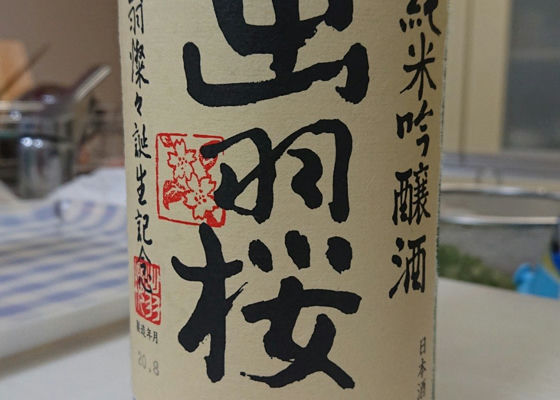 純米吟醸酒
日本酒
出羽桜
羽燦々誕生記念
製造年月
20.8